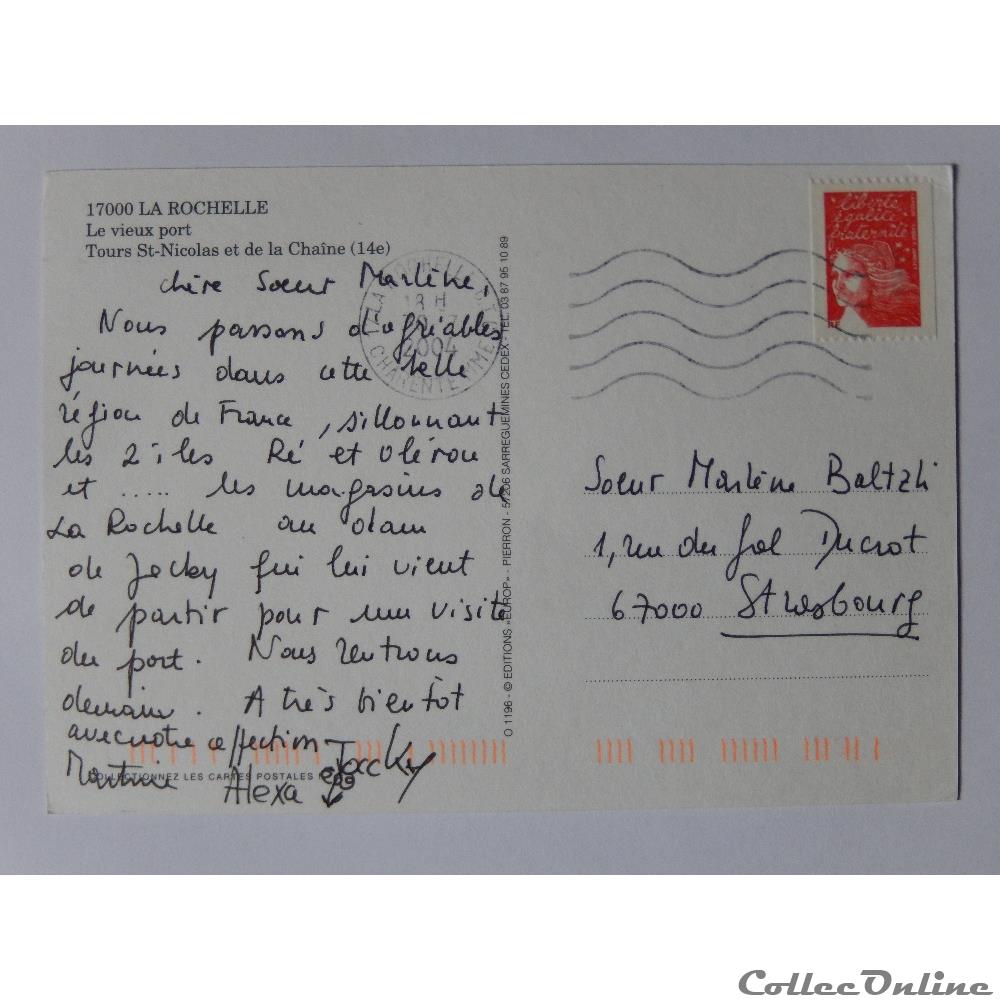 17000 LA ROCHELLE
Le vieux port
Tours St-Nicolas et de la Chaîne (14e)
chère Soeur Marlène,
Nous passons d'agréables
journées dans cette belle
région de France, sillonnant
les 2 îles Ré et Oléron
et ..... les magasins de
La Rochelle au dam
de Jacky qui lui vient
de partir pour une visite
du port. Nous rentrons
demain. A très bientôt
avec notre affection
Martine Alexa Jacky
COLLECTIONNEZ LES CARTES POSTALES
18 H
2004
CHARENTE MME
O 1196 - © EDITIONS «EUROP» - PIERRON - 57206 SARREGUEMINES CEDEX - TEL. 03 87 95 10 89
liberté
égalité
fraternité
RF
Soeur Marlène Baltzli
1, rue du Gal Ducrot
67000 Strasbourg
CollecOnline